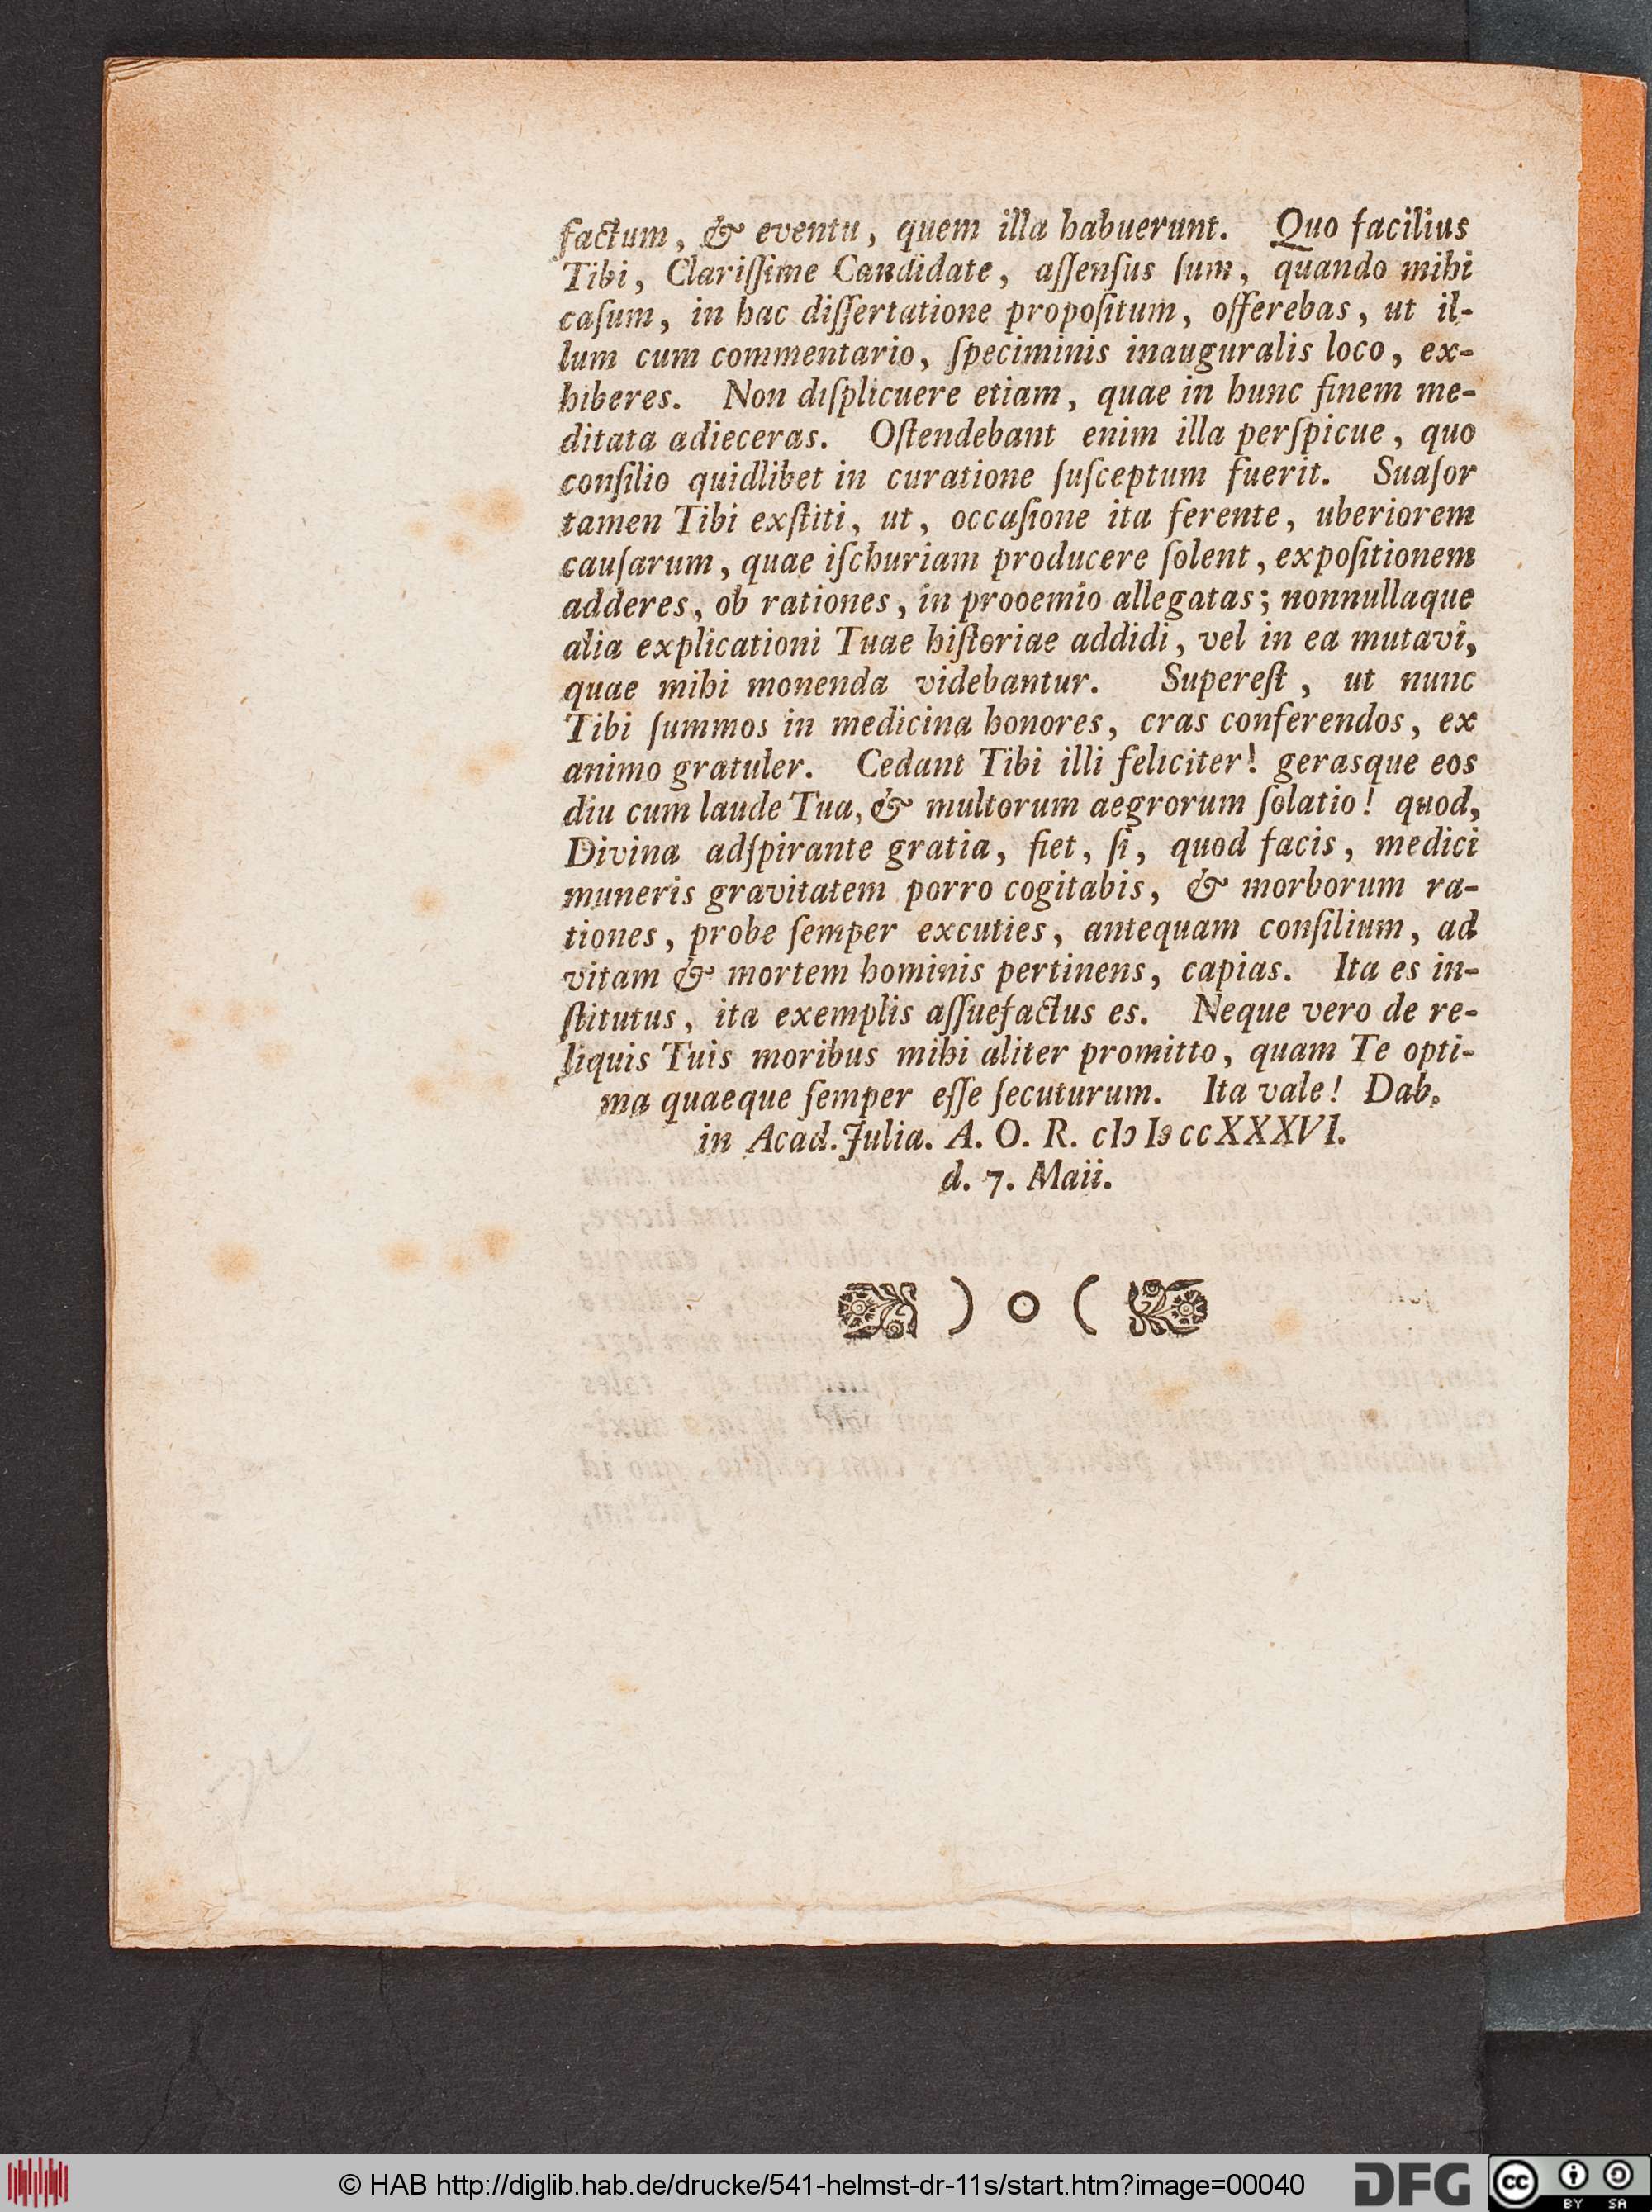 factum, & eventu, quem illa habuerunt. Quo facilius
Tibi, Clariſſime Candidate, aſſenſus ſum, quando mihi
caſum, in hac diſſertatione propoſitum, offerebas, ut il-
lum cum commentario, ſpeciminis inauguralis loco, ex-
hiberes. Non diſplicuere etiam, quae in hunc finem me-
ditata adieceras. Oſtendebant enim illa perſpicue, quo
conſilio quidlibet in curatione ſuſceptum fuerit. Suaſor
tamen Tibi exſtiti, ut, occaſione ita ferente, uberiorem
cauſarum, quae iſchuriam producere ſolent, expoſitionem
adderes, ob rationes, in prooemio allegatas; nonnullaque
alia explicationi Tuae hiſtoriae addidi, vel in ea mutavi,
quae mihi monenda videbantur. Supereſt, ut nunc
Tibi ſummos in medicina honores, cras conferendos, ex
animo gratuler. Cedant Tibi illi feliciter! gerasque eos
diu cum laude Tua, & multorum aegrorum ſolatio! quod,
Divina adſpirante gratia, fiet, ſi, quod facis, medici
muneris gravitatem porro cogitabis, & morborum ra-
tiones, probe ſemper excuties, antequam conſilium, ad
vitam & mortem hominis pertinens, capias. Ita es in-
ſtitutus, ita exemplis aſſuefactus es. Neque vero de re-
liquis Tuis moribus mihi aliter promitto, quam Te opti-
ma quaeque ſemper eſſe ſecuturum. Ita vale! Dab.
in Acad. Julia. A. O. R. cIɔ Iɔ ccXXXVI.
d. 7. Maii.
) o (
© HAB http://diglib.hab.de/drucke/541-helmst-dr-11s/start.htm?image=00040
DFG
cc
BY SA